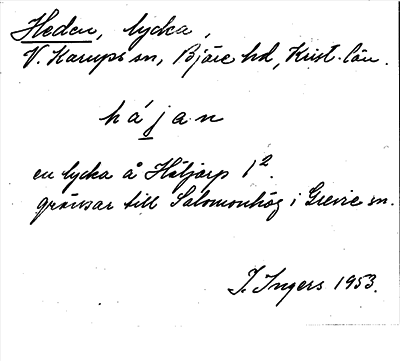 Heden, lycka,
V. Karups sn, Bjäre hd, Krist. län.
hájan
en lycka å Håljarp 1².
gränsar till Salomonhög i Grevie sn.
I. Ingers 1953.